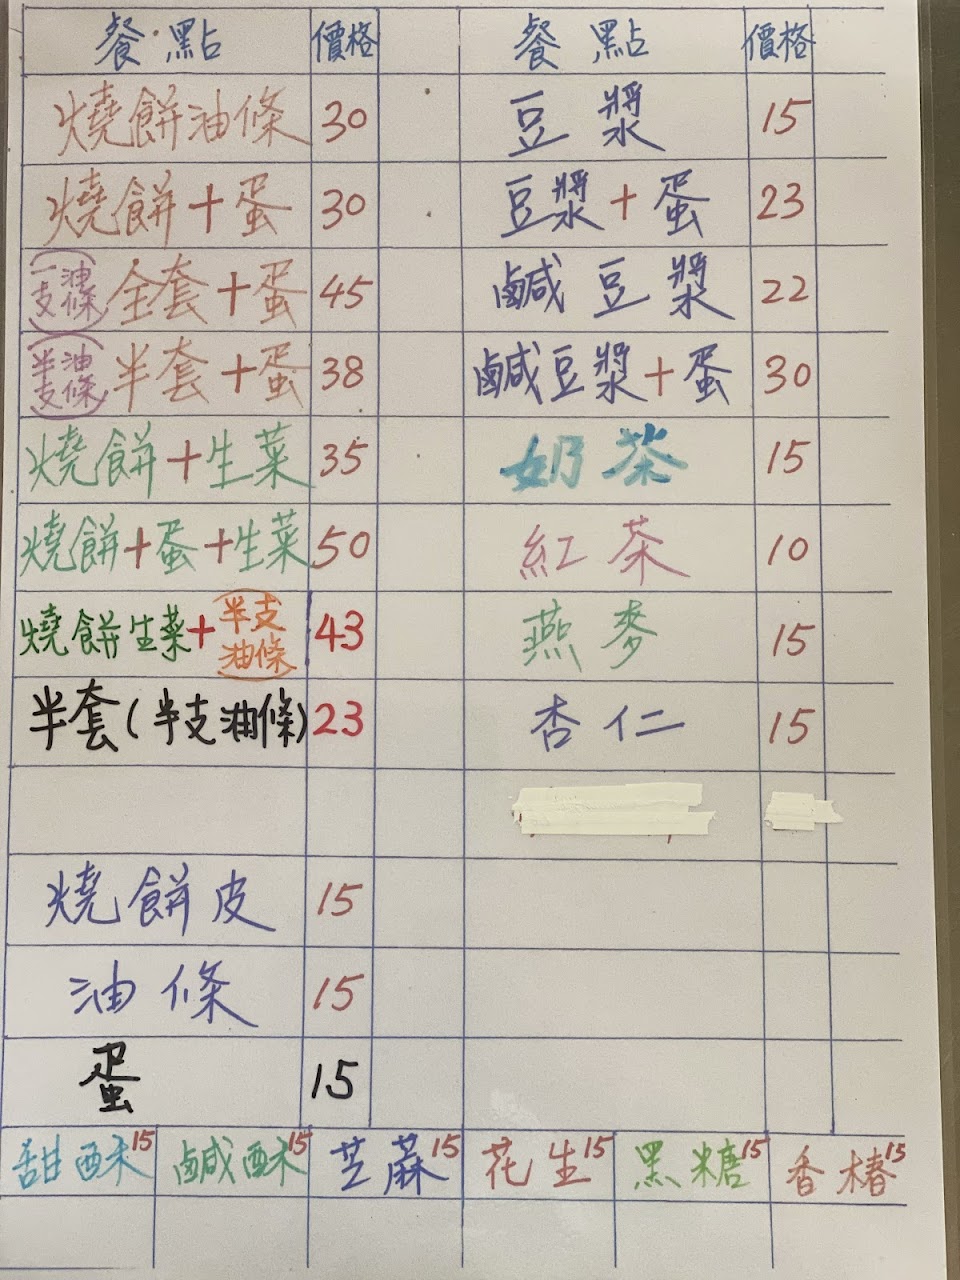 餐點 價格 餐點 價格
燒餅油條 30 豆漿 15
燒餅+蛋 30 豆漿+蛋 23
(一支油條)全套+蛋 45 鹹豆漿 22
(半支油條)半套+蛋 38 鹹豆漿+蛋 30
燒餅+生菜 35 奶茶 15
燒餅+蛋+生菜 50 紅茶 10
燒餅生菜+(半支油條) 43 燕麥 15
半套(半支油條) 23 杏仁 15
燒餅皮 15
油條 15
蛋 15
甜酥15 鹹酥15 芝蔴15 花生15 黑糖15 香椿15